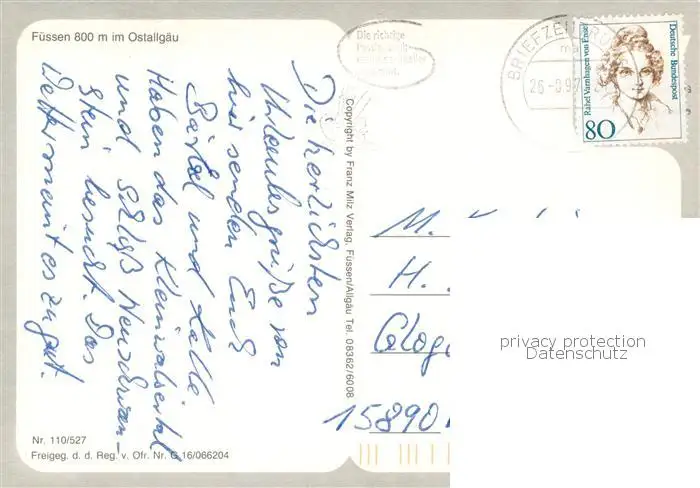 Füssen 800 m im Ostallgäu
Die herzlichsten
Urlaubsgrüße von
hier senden Euch
Bärbel und Kalle.
Haben das Kleinwalsertal
und Schloß Neuschwan-
stein besucht. Das
Wetter meint es zu gut.
Nr. 110/527
Freigeg. d. d. Reg. v. Ofr. Nr. G 16/066204
Copyright by Franz Milz Verlag, Füssen/Allgäu Tel. 08362/6008
Die richtige
BRIEFZENTRUM
Rahel Varnhagen von Ense
Deutsche Bundespost
80
M.
H.
15890
privacy protection
Datenschutz